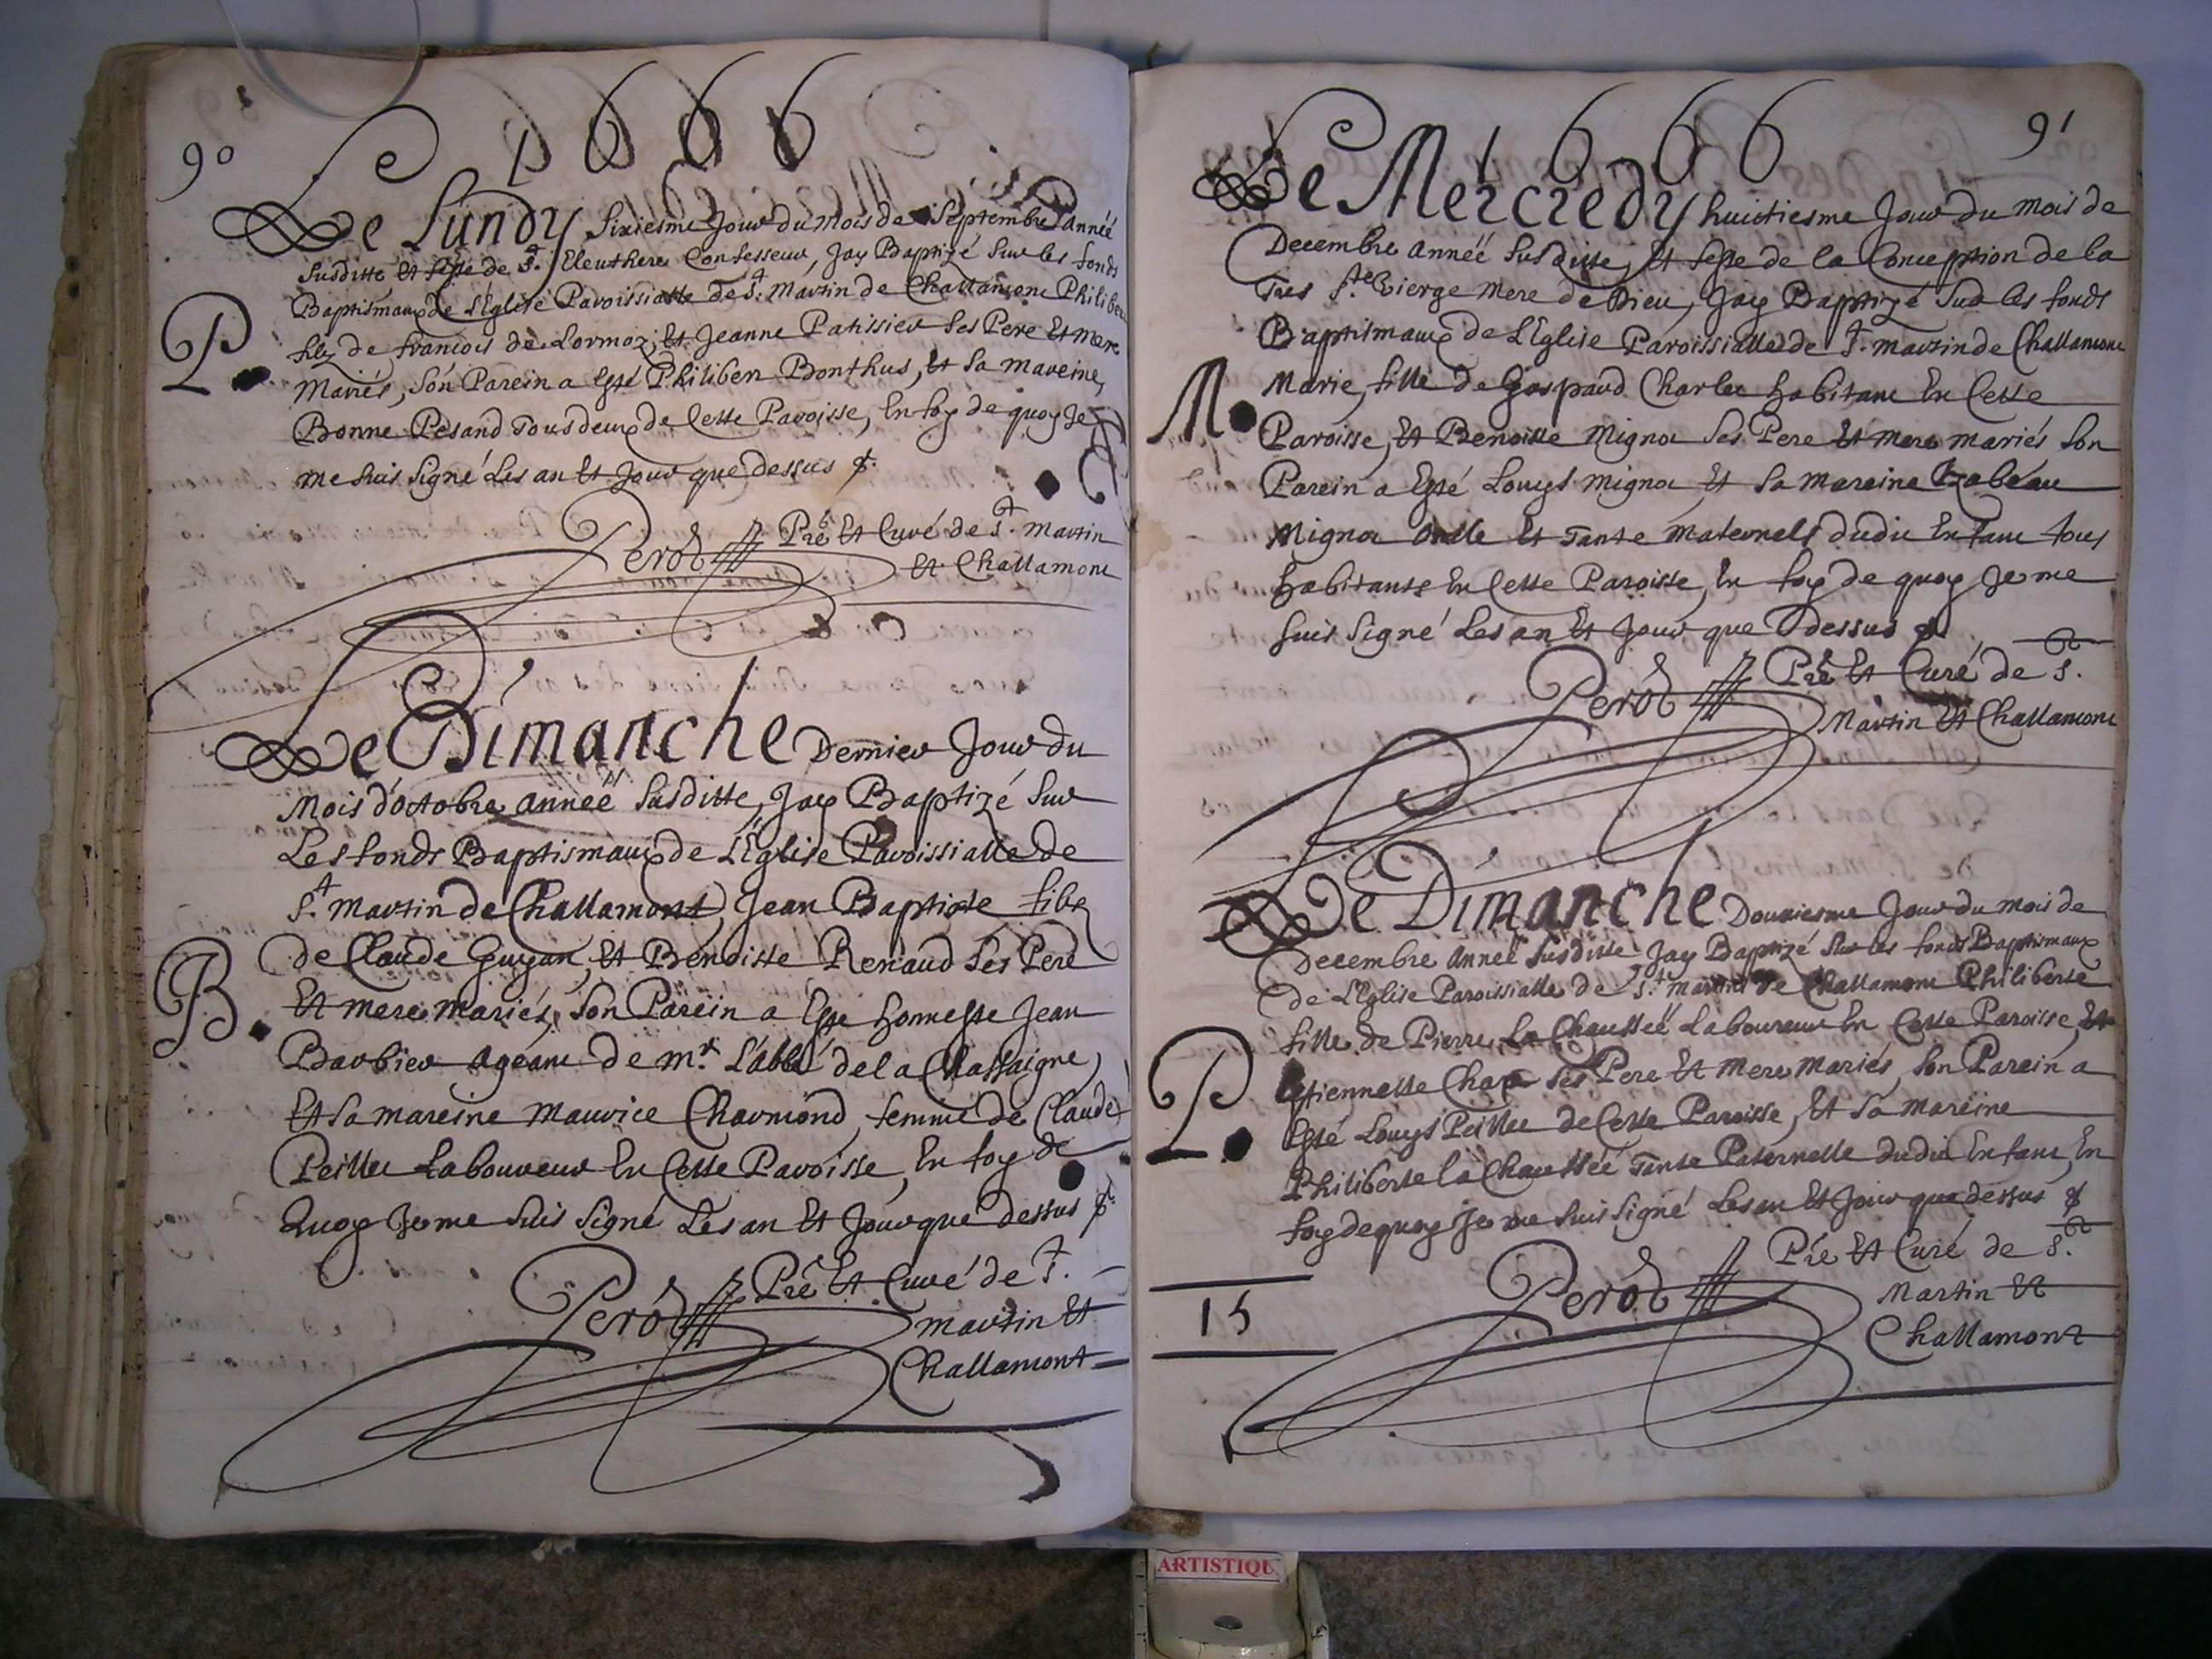 90
1666
Le Lundy Sixiesme Jour du Mois de Septembre Année
susditte Et feste de St. Eleuthere Confesseur, Jay Baptizé Sur les fonds
Baptismaux de L'Eglise Paroissialle de St. Martin de Challamont Philiber
P.
filz de francois de Lormoz, Et Jeanne Patissier Ses Pere Et Mere
Mariés, Son Parein a Esté Philiber Bonthus, Et Sa Mareine,
Bonne Pesand Tous deux de Cette Paroisse, En foy de quoy Je
me suis Signé Les an Et Jour que dessus
Perod Pre Et Curé de St. Martin
Et Challamont
Le Dimanche Dernier Jour du
Mois d'octobre année Susditte, Jay Baptizé Sur
Les fonds Baptismaux de L'Eglise Paroissialle de
St. Martin de Challamont, Jean Baptiste filz
de Claude Guyan, Et Benoiste Renaud Ses Pere
B.
Et Mere Mariés, Son Parein a Esté honneste Jean
Barbier Ageant de Mr. L'abbé de la Chassaigne,
Et Sa mareine Maurice Charmond, femme de Claude
Peillet Laboureur En Cette Paroisse, En foy de
Quoy Je me suis Signé Les an Et Jour que dessus
Perod Pre Et Curé de St.
Martin Et
Challamont
91
1666
Le Mercredy huictiesme Jour du Mois de
Decembre année Susditte, Et feste de la Conception de la
Tres Ste Vierge Mere de Dieu, Jay Baptizé Sur les fonds
Baptismaux de L'Eglise Paroissialle de St. Martin de Challamont
M.
Marie, fille de Gaspard Charlet habitant En Cette
Paroisse, Et Benoiste Mignot Ses Pere Et Mere mariés Son
Parein a Esté Louys Mignot Et Sa Mareine Izabeau
Mignot Oncle Et Tante Maternels dudit Enfant Tous
habitants En Cette Paroisse, En foy de quoy Je me
suis Signé Les an Et Jour que dessus
Perod Pre Et Curé de St.
Martin Et Challamont
Le Dimanche Douziesme Jour du Mois de
Decembre Année Susditte Jay Baptizé Sur les fonds Baptismaux
de L'Eglise Paroissialle de St. Martin de Challamont Philiberte
fille de Pierre La Chaussée Laboureur En Cette Paroisse, Et
P.
Estiennette Ses Pere Et Mere Mariés, Son Parein a
Esté Louys Peillet de Cette Paroisse, Et Sa Mareine
Philiberte la Chaussée Tante Paternelle dudit Enfant, En
foy de quoy Je me suis Signé Les an Et Jour que dessus
Perod Pre Et Curé de St.
Martin Et
Challamont
15
ARTISTIQU